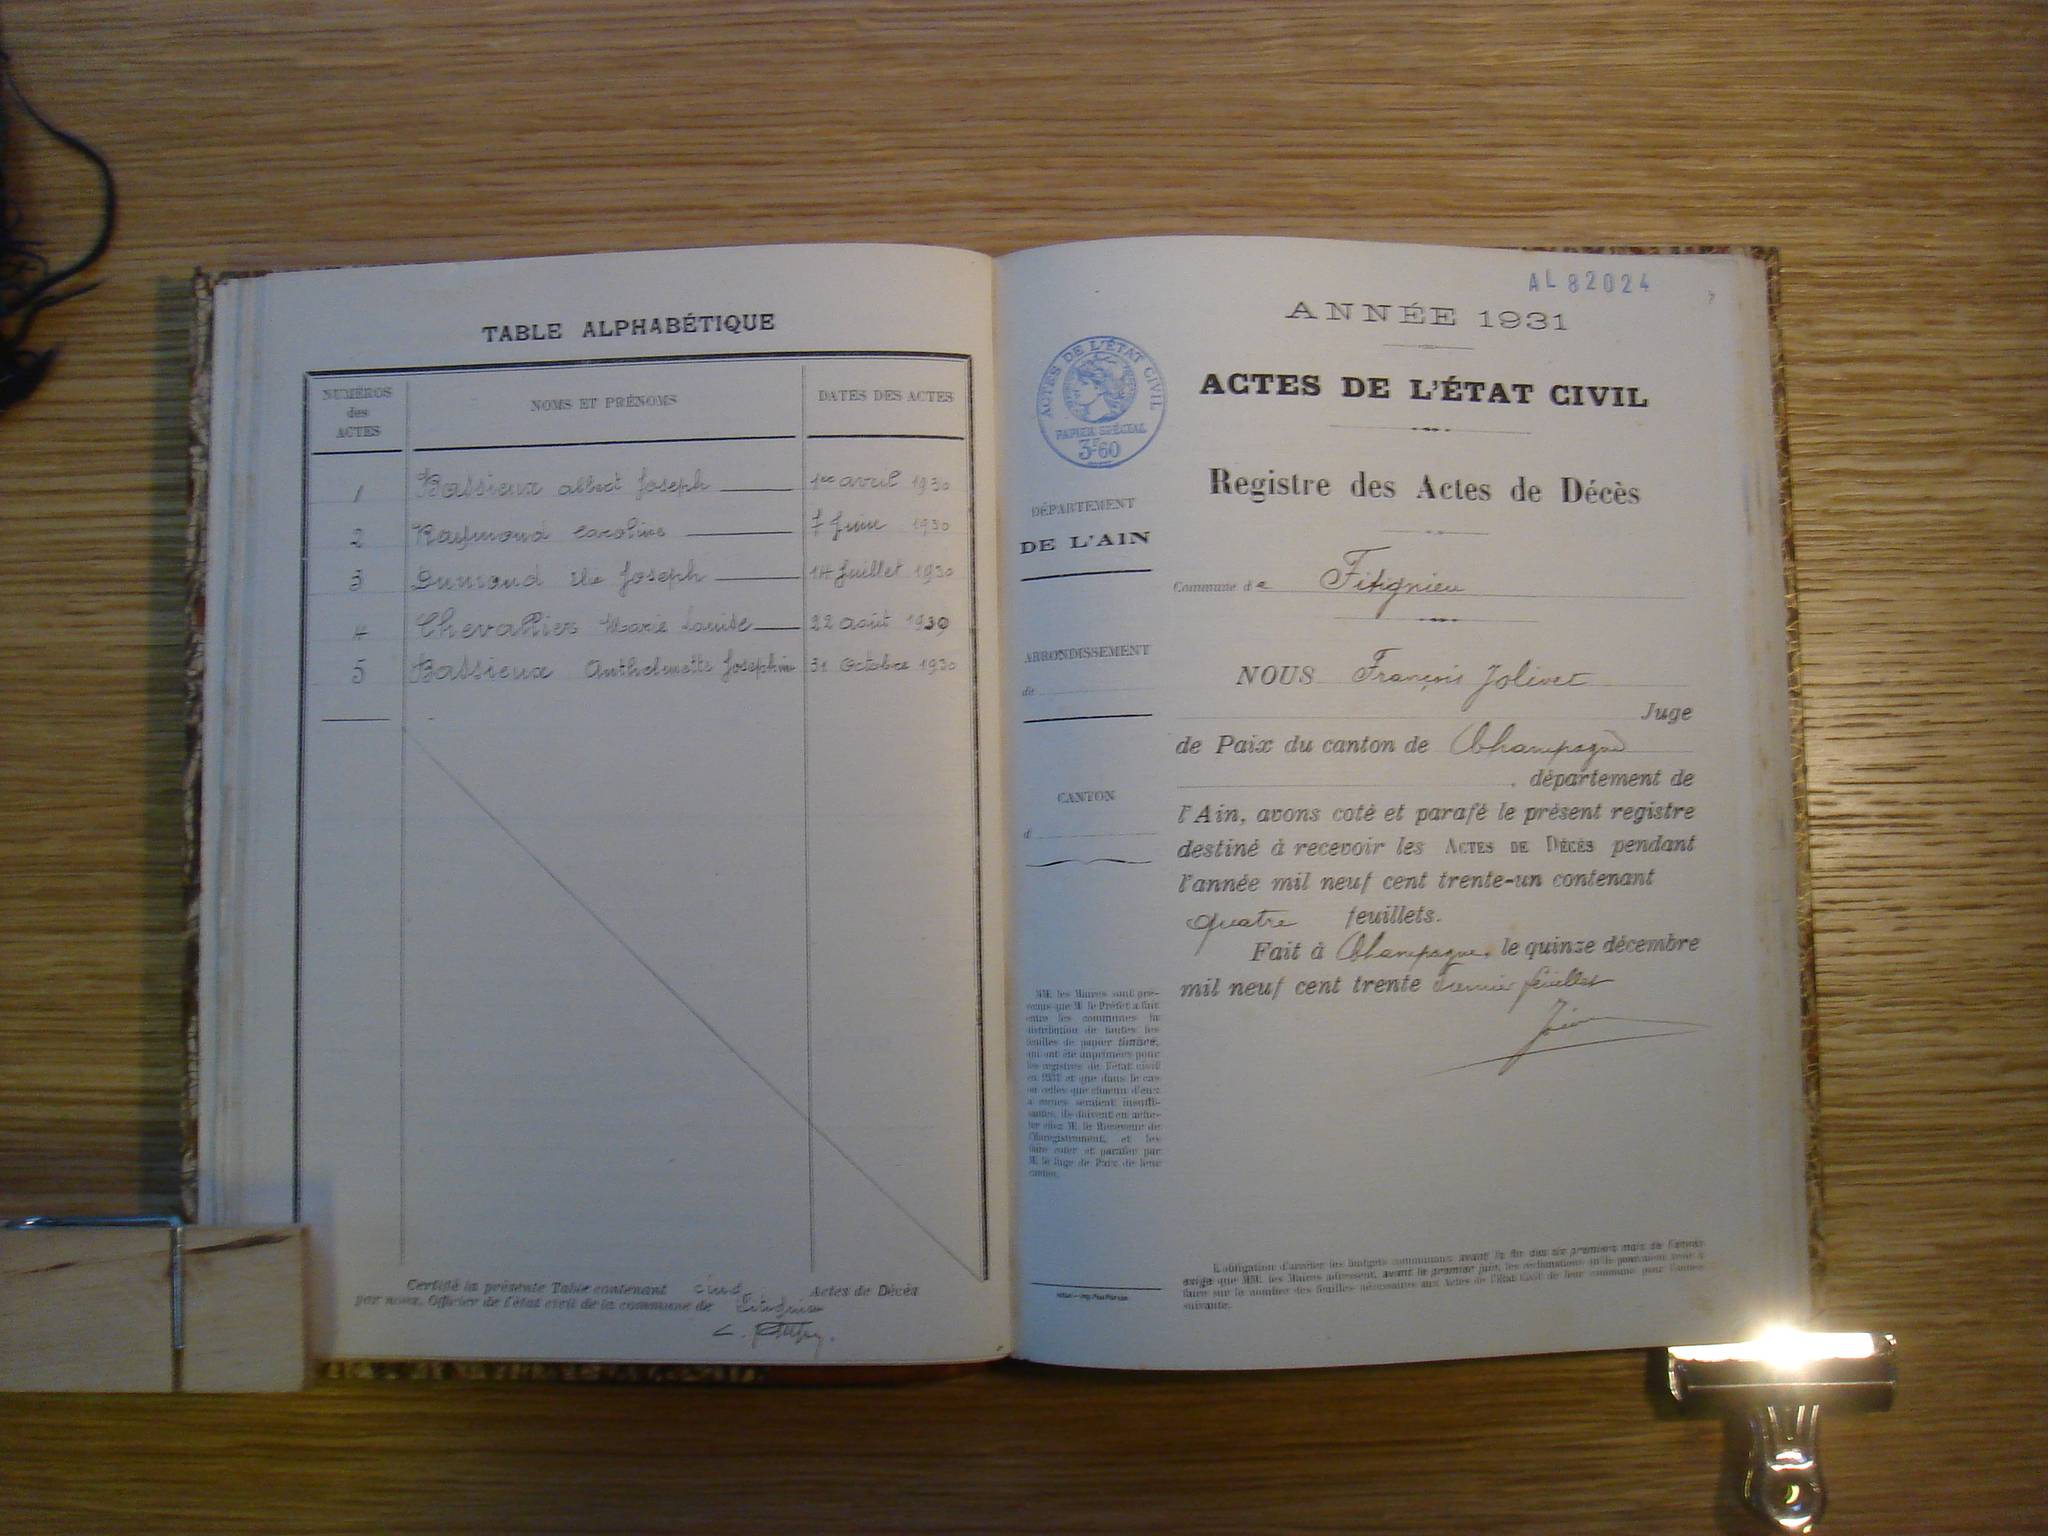 TABLE ALPHABÉTIQUE
NUMÉROS des ACTES
NOMS ET PRÉNOMS
DATES DES ACTES
1 Bassieux Albert Joseph 1er avril 1930
2 Raymond Caroline 7 Juin 1930
3 Dumond Joseph 14 Juillet 1930
4 Chevallier Marie Louise 22 août 1930
5 Bassieux Anthelmette Josephine 31 Octobre 1930
Certifié la présente Table contenant cinq Actes de Décès
par nous, Officier de l'état civil de la commune de Fitignieu
AL 82024
ANNÉE 1931
ACTES DE L'ÉTAT CIVIL
PAPIER SPÉCIAL
3F60
ACTES DE L'ÉTAT CIVIL
Registre des Actes de Décès
DÉPARTEMENT
DE L'AIN
Commune de Fitignieu
ARRONDISSEMENT
de
CANTON
d
NOUS François Jolivet
Juge
de Paix du canton de Champagne
, département de
l'Ain, avons coté et parafé le présent registre
destiné à recevoir les ACTES DE DÉCÈS pendant
l'année mil neuf cent trente-un contenant
quatre feuillets.
Fait à Champagne, le quinze décembre
mil neuf cent trente Premier feuillet
MM. les Maires sont pré-
venus que M. le Préfet a fait
entre les communes la
distribution de toutes les
feuilles de papier timbré,
qui ont été imprimées pour
les registres de l'état civil
en 1931 et que dans le cas
où celles que chacun d'eux
a reçues seraient insuffi-
santes, ils doivent en ache-
ter chez M. le Receveur de
l'Enregistrement, et les
faire coter et parafer par
M. le Juge de Paix de leur
canton.
L'obligation d'arrêter les budgets communaux avant la fin des six premiers mois de l'année
exige que MM. les Maires adressent, avant le premier juin, les réclamations qu'ils pourraient avoir à
faire sur le nombre des feuilles nécessaires aux Actes de l'État Civil de leur commune pour l'année
suivante.